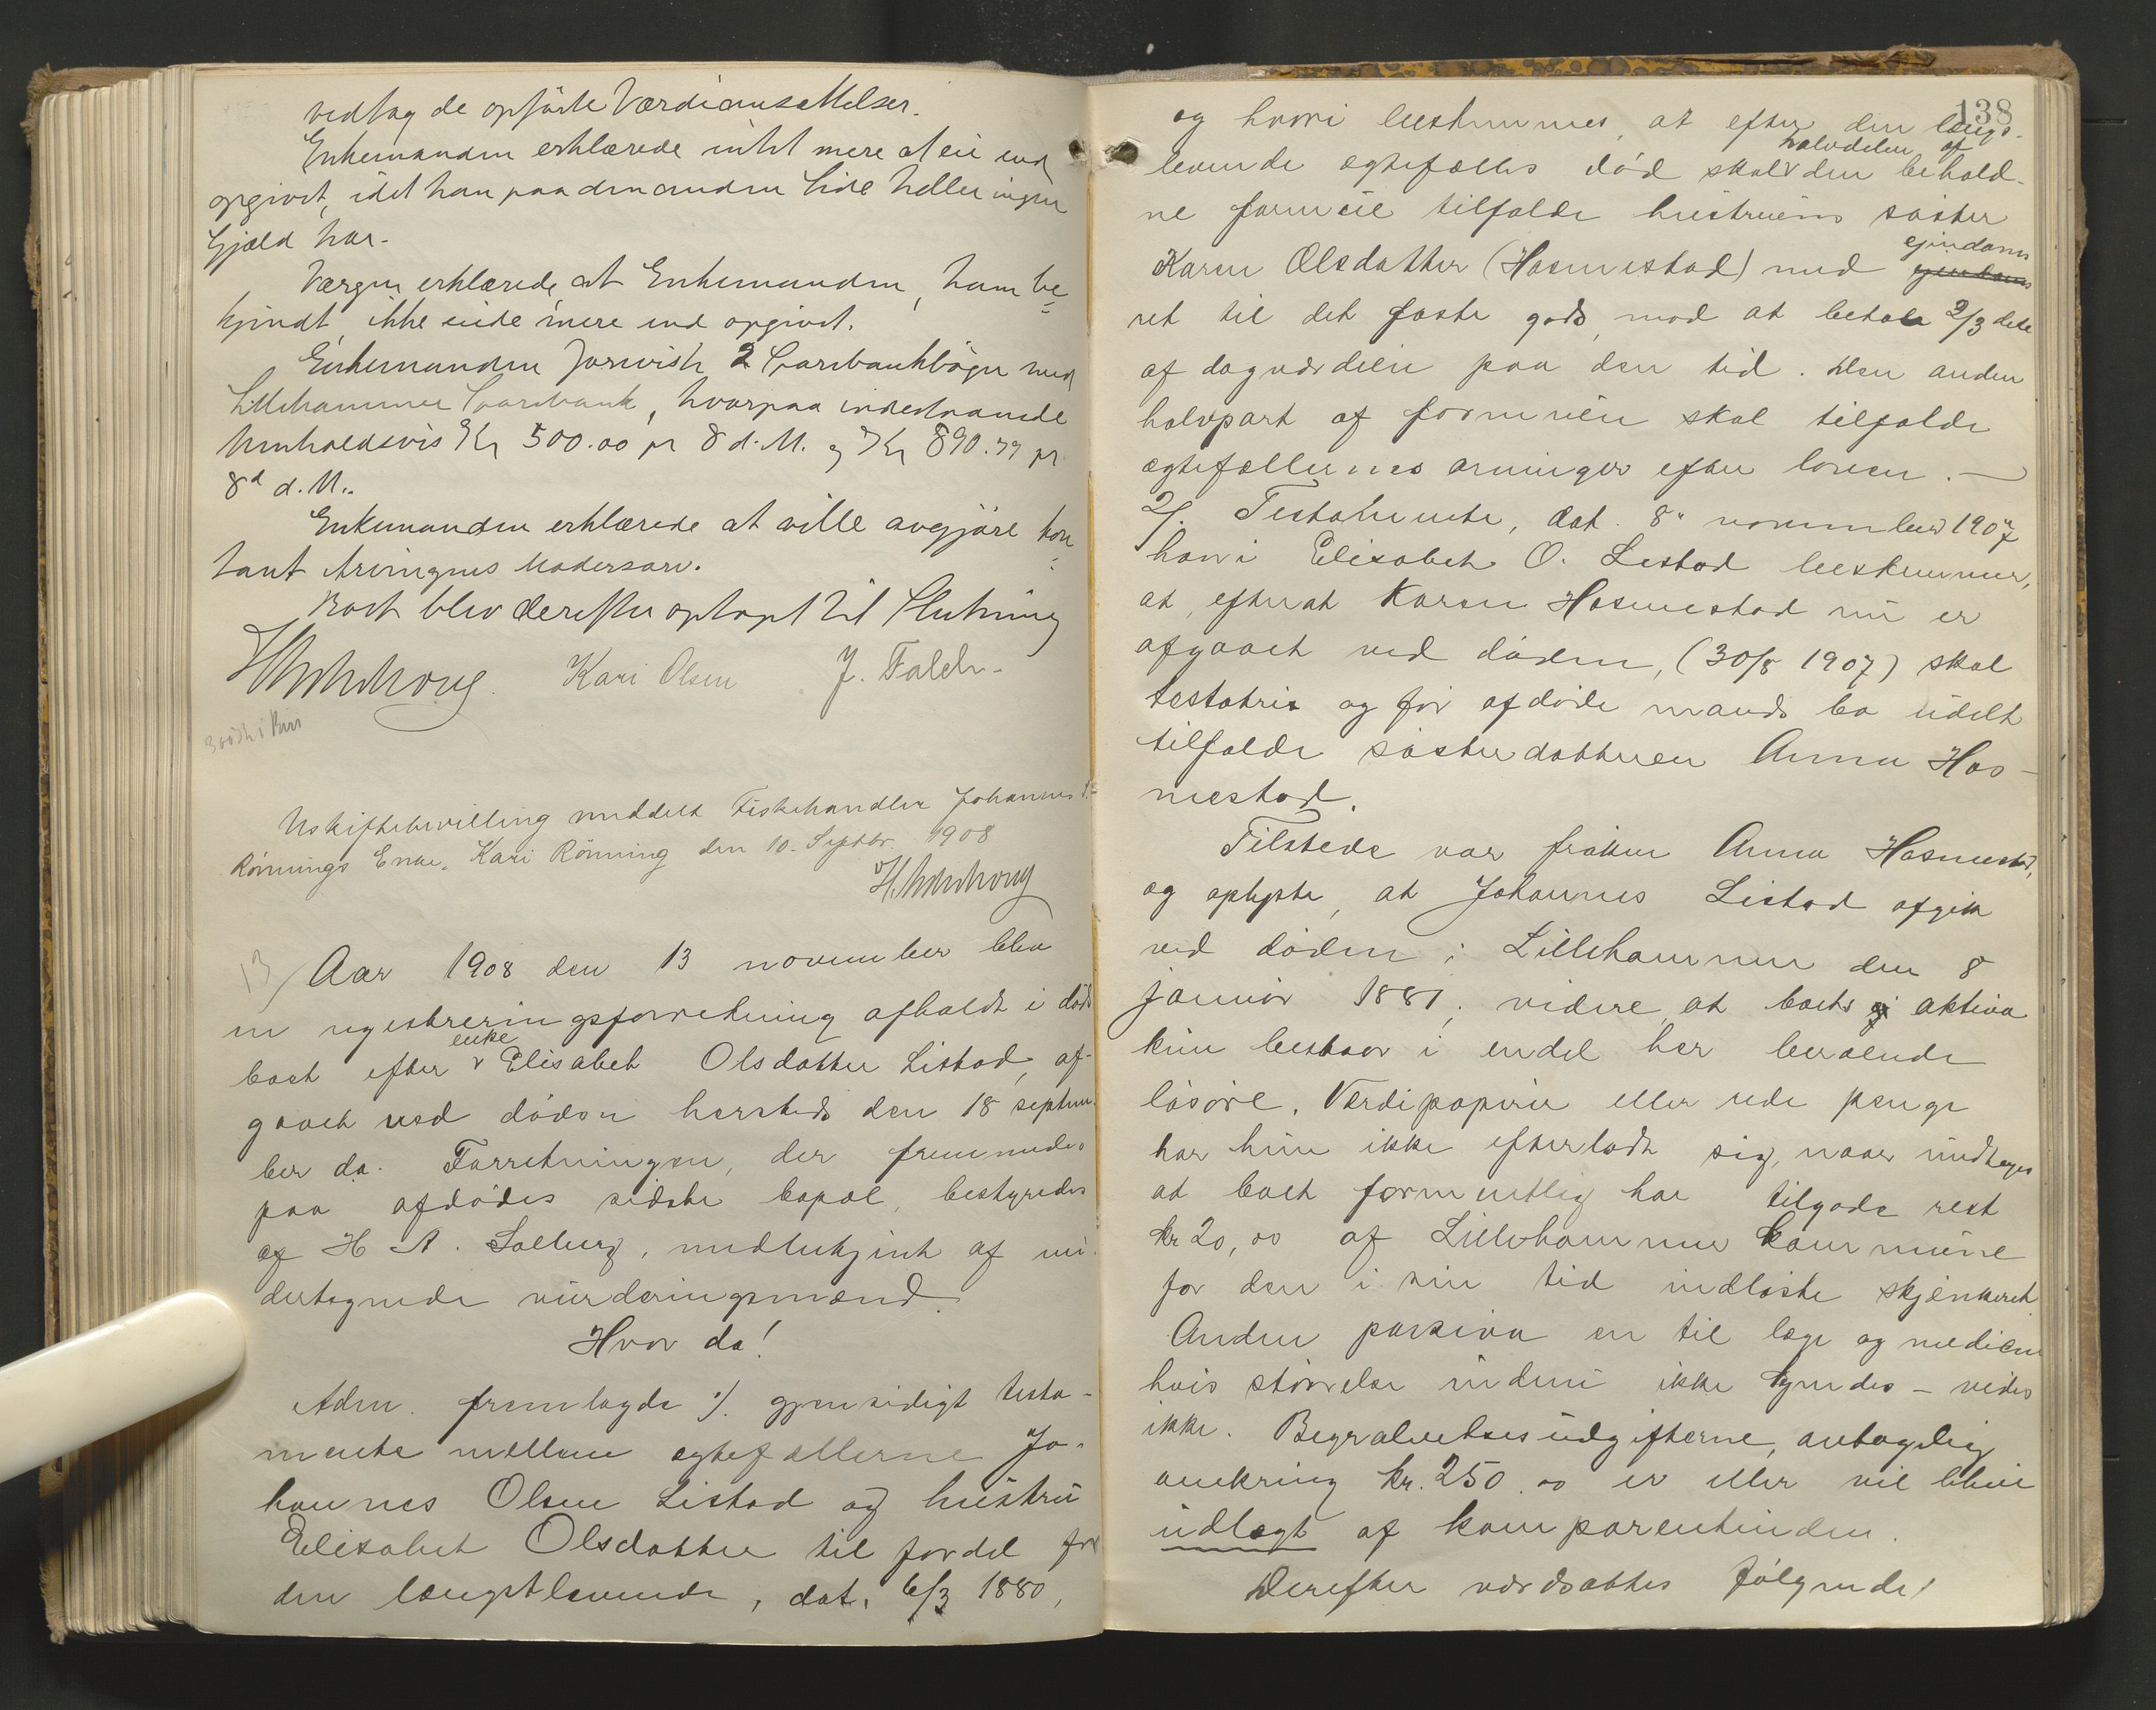 vedtog de opførte Værdiansættelser.
Enkemanden erklærede intet mere at eie end
opgivet, idet han paa den anden Side heller ingen
Gjæld har.
Værgen erklærede, at Enkemanden, ham be=
kjendt, ikke eiede mere end opgivet.
Enkemanden foreviste 2 Sparebankbøger med
Lillehammer Sparebank, hvorpaa indestaaende
henholdsvis Kr 500.00 pr 8 d. M. og Kr 890.79 pr
8d d. M..
Enkemanden erklærede at ville avgjøre kon=
tant Arvingnes Mødrearv.
Boet blev derefter optaget til Slutning
Kari Olsen J. Falch
Uskiftebevilling meddelt Fiskehandler Johannes
Rönnings Enke, Kari Rönning den 10. Septbr. 1908
13/ Aar 1908 den 13 november blev
en registreringsforretning afholdt i døds
boet efter enke Elisabeth Olsdatter Listad, af-
gaaet ved døden hersteds den 18 septem-
ber da. Forretningen, der fremmedes
paa afdødes sidste bopæl, bestyredes
af H A. Solberg, medbekjent af un-
dertegnede vurderingsmænd.
Hvor da!
Adm. fremlagde 1/. gjensidigt testa-
mente mellem egtefællerne Jo-
hannes Olsen Listad og hustru
Elisabet Olsdatter til fordel for
den længstlevende, dat. 6/3 1880,
138
og hvori bestemmes, at efter den længs-
levende egtefælles død skal halvdelen af den behold-
ne formue tilfalde hustruens søster
Karen Olsdatter (Hosmestad) med ejendoms
ret til det faste gods, mod at betale 2/3 dele
af dagværdien paa den tid. Den anden
halvpart af formuen skal tilfalde
egtefællernes arvinger efter loven. —
2/. Testamente, dat. 8de november 1907
hvori Elisabeth O. Listad bestemmer,
at, efterat Karen Hosmestad nu er
afgaaet ved døden, (30/8 1907) skal
testatrix og før afdøde mands bo udelt
tilfalde søsterdatteren Anna Hos-
mestad.
Tilstede var frøken Anna Hosmestad,
og oplyste, at Johannes Listad afgik
ved døden i Lillehammer den 8
januar 1881; videre, at boets aktiva
kun bestaar i endel her beroende
løsøre. Værdipapirer eller rede penge
har hun ikke efterladt sig, naar undtages
at boet formentlig har tilgode rest
kr 20,00 af Lillehammer kommune
for den i sin tid indløste skjenkeret
Anden passiva en til læge og medicin
hvis størrelse endnu ikke kjendes – vides
ikke. Begravelsesudgifterne, antagelig
omkring kr. 250.00 er eller vil blive
udlagt af komparentinden.
Derefter værdsattes følgende: